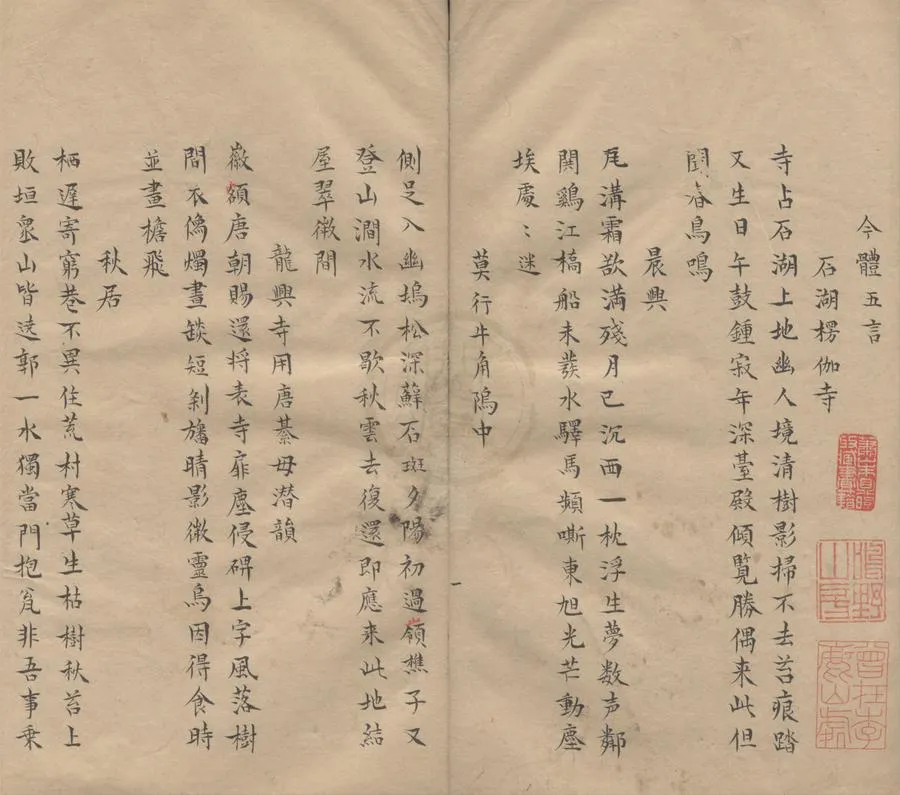 今體五言
石湖楞伽寺
寺占石湖上地幽人境清樹影掃不去苔痕踏
又生日午鼓鍾寂年深臺殿傾覽勝偶来此但
聞春鳥鳴
晨興
尾溝霜欲滿殘月已沉西一枕浮生夢数声鄰
関鷄江橋船未發水驛馬頻嘶東旭光芒動塵
埃處：迷
莫行牛角隖中
側足入幽塢松深蘚石斑夕陽初過嶺樵子又
登山澗水流不歇秋雲去復還即應来此地結
屋翠微間
龍興寺用唐綦毋潜韻
徽額唐朝賜還将表寺扉塵侵碑上字風落樹
間衣偽燭晝燄短刹旛晴影微靈烏因得食時
並畫檐飛
秋居
栖遲寄窮巷不異住荒村寒草生枯樹秋苔上
敗垣衆山皆遶郭一水獨當門抱瓮非吾事乗